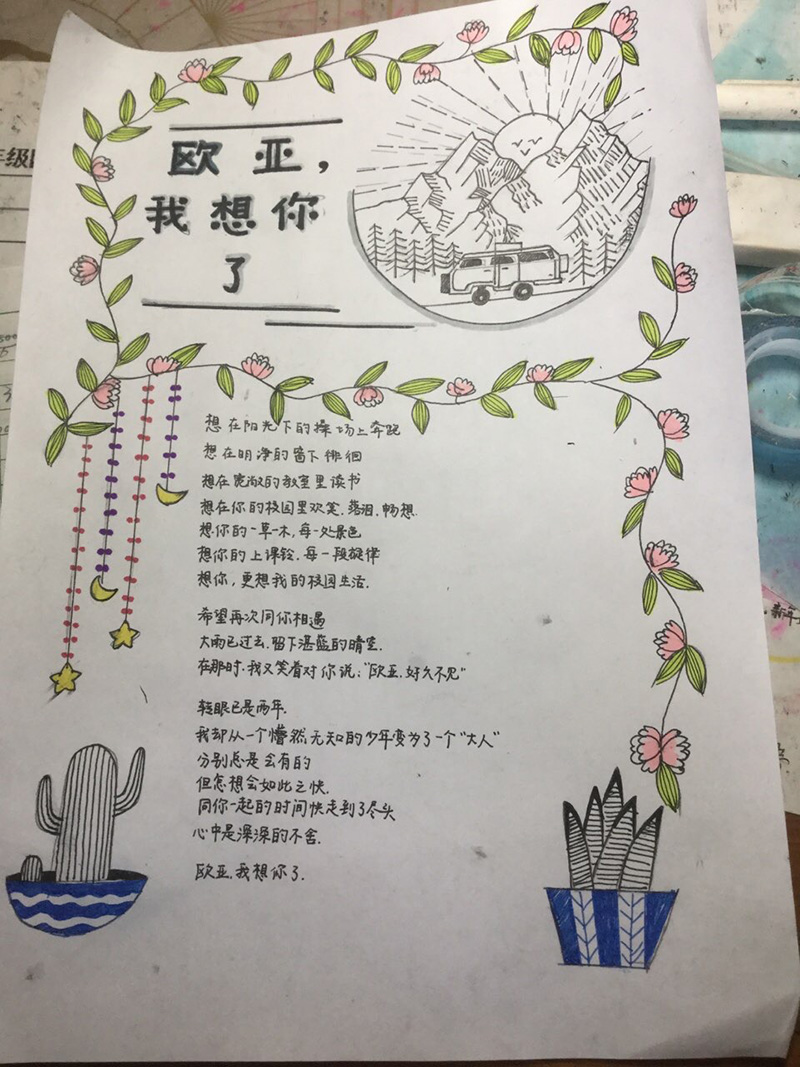 欧亚，
我想你
了
想在阳光下的操场上奔跑
想在明净的窗下徘徊
想在宽敞的教室里读书
想在你的校园里欢笑、落泪、畅想.
想你的一草一木,每一处景色
想你的上课铃、每一段旋律
想你，更想我的校园生活.
希望再次同你相遇
大雨已过去、留下湛蓝的晴空.
在那时、我又笑着对你说："欧亚、好久不见"
转眼已是两年.
我却从一个懵然无知的少年变为了一个"大人"
分别总是会有的
但怎想会如此之快.
同你一起的时间快走到了尽头
心中是深深的不舍.
欧亚、我想你了.